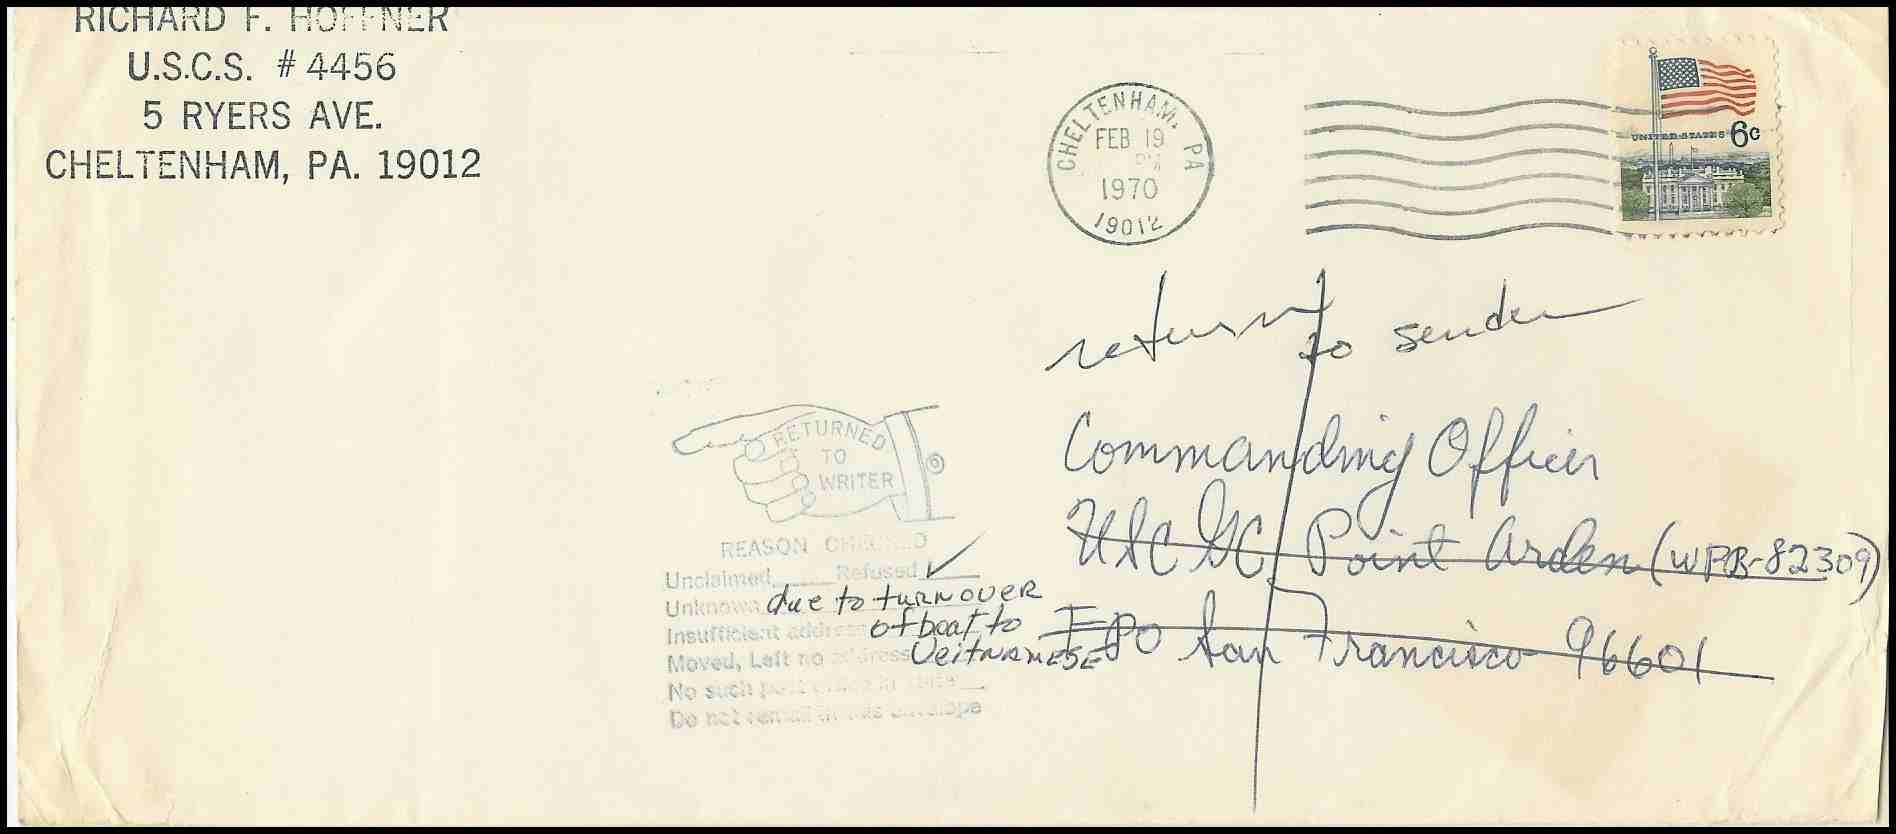 RICHARD F. HOFFNER
U.S.C.S. # 4456
5 RYERS AVE.
CHELTENHAM, PA. 19012
CHELTENHAM, PA
FEB 19
PM
1970
19012
UNITED STATES 6c
return to sender
RETURNED
TO
WRITER
REASON CHECKED
Unclaimed Refused ✓
Unknown
due to turnover
Insufficient address
of boat to
Moved, Left no address
Veitnamese
No such post office in state
Do not remail in this envelope
Commanding Officer
USCGC Point Arden (WPB-82309)
FPO San Francisco 96601